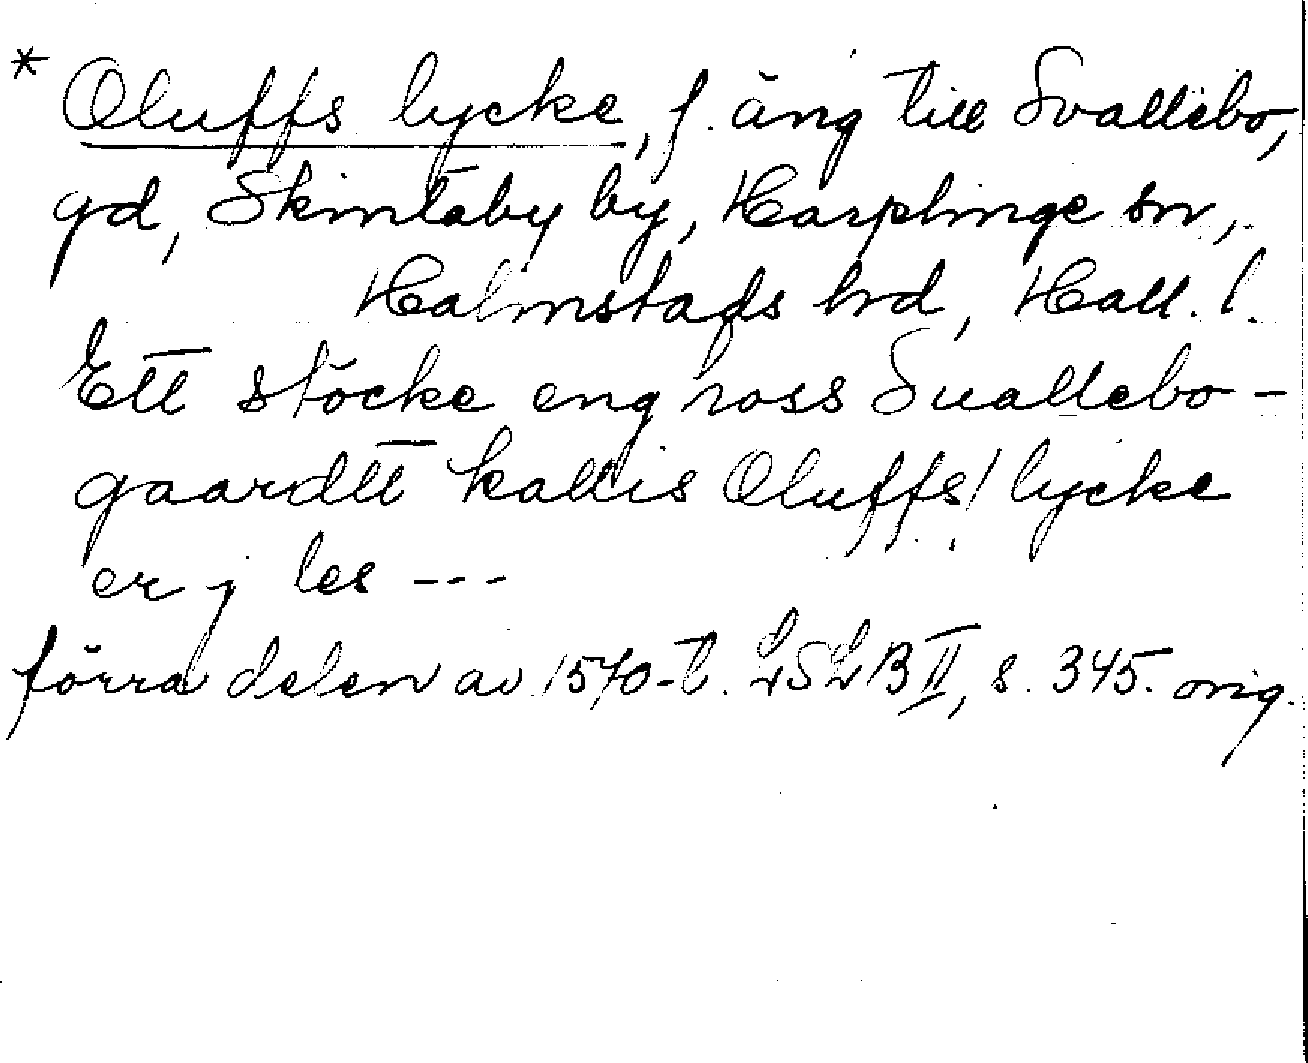 * Oluffs lycke, f. äng till Svallebo,
gd, Skintaby by, Harplinge sn,
Halmstads hd, Hall. l.
Ett stöcke eng hoss Suallebo-
gaardtt kallis Oluffs! lycke
er j les ---
förra delen av 1570-t. LSLB II, s. 345. orig.